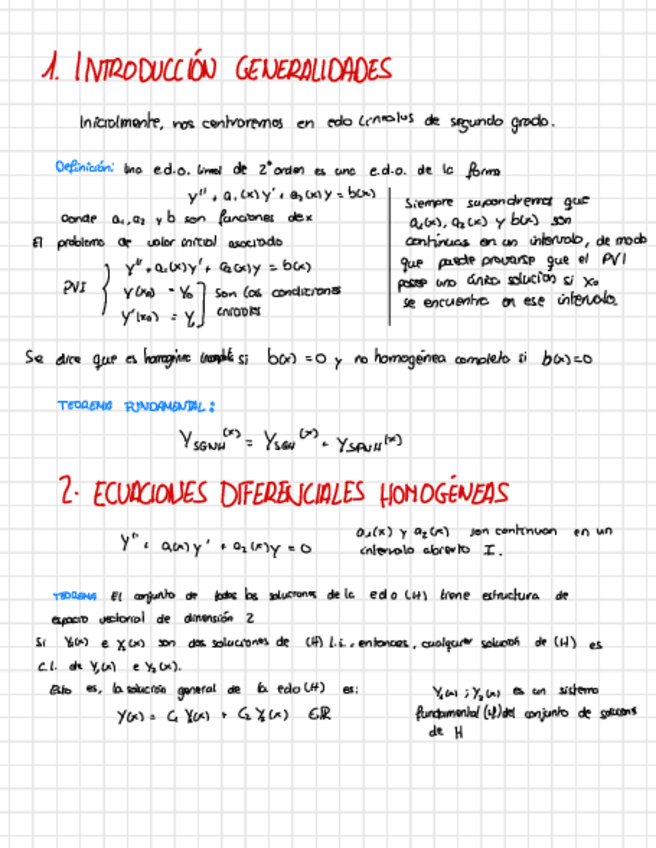 1. INTRODUCCIÓN GENERALIDADES
Inicialmente, nos centraremos en edo lineales de segundo grado.
Definición: Una e.d.o. lineal de 2º orden es una e.d.o. de la forma
y'' + a₁(x)y' + a₂(x)y = b(x)
donde a₁, a₂ y b son funciones de x
El problema de valor inicial asociado
PVI { y'' + a₁(x)y' + a₂(x)y = b(x)
y(x₀) = y₀ ] son las condiciones
y'(x₀) = y₁
Siempre supondremos que
a₁(x), a₂(x) y b(x) son
continuas en un intervalo, de modo
que puede probarse que el PVI
posee una única solución si x₀
se encuentra en ese intervalo.
Se dice que es homogénea si b(x) = 0 y no homogénea completa si b(x)=0
TEOREMA FUNDAMENTAL:
Y SGNH (x) = Y SGH (x) + Y SPNH (x)
2. ECUACIONES DIFERENCIALES HOMOGÉNEAS
y'' + a₁(x)y' + a₂(x)y = 0
a₁(x) y a₂(x) son continuas en un
intervalo abierto I.
TEOREMA El conjunto de todas las soluciones de la edo (H) tiene estructura de
espacio vectorial de dimensión 2
Si y₁(x) e y₂(x) son dos soluciones de (H) l.i., entonces, cualquier solución de (H) es
c.l. de y₁(x) e y₂(x).
Esto es, la solución general de la edo (H) es:
y(x) = C₁ y₁(x) + C₂ y₂(x) ∈ℝ
y₁(x) ; y₂(x) es un sistema
fundamental del conjunto de
de H